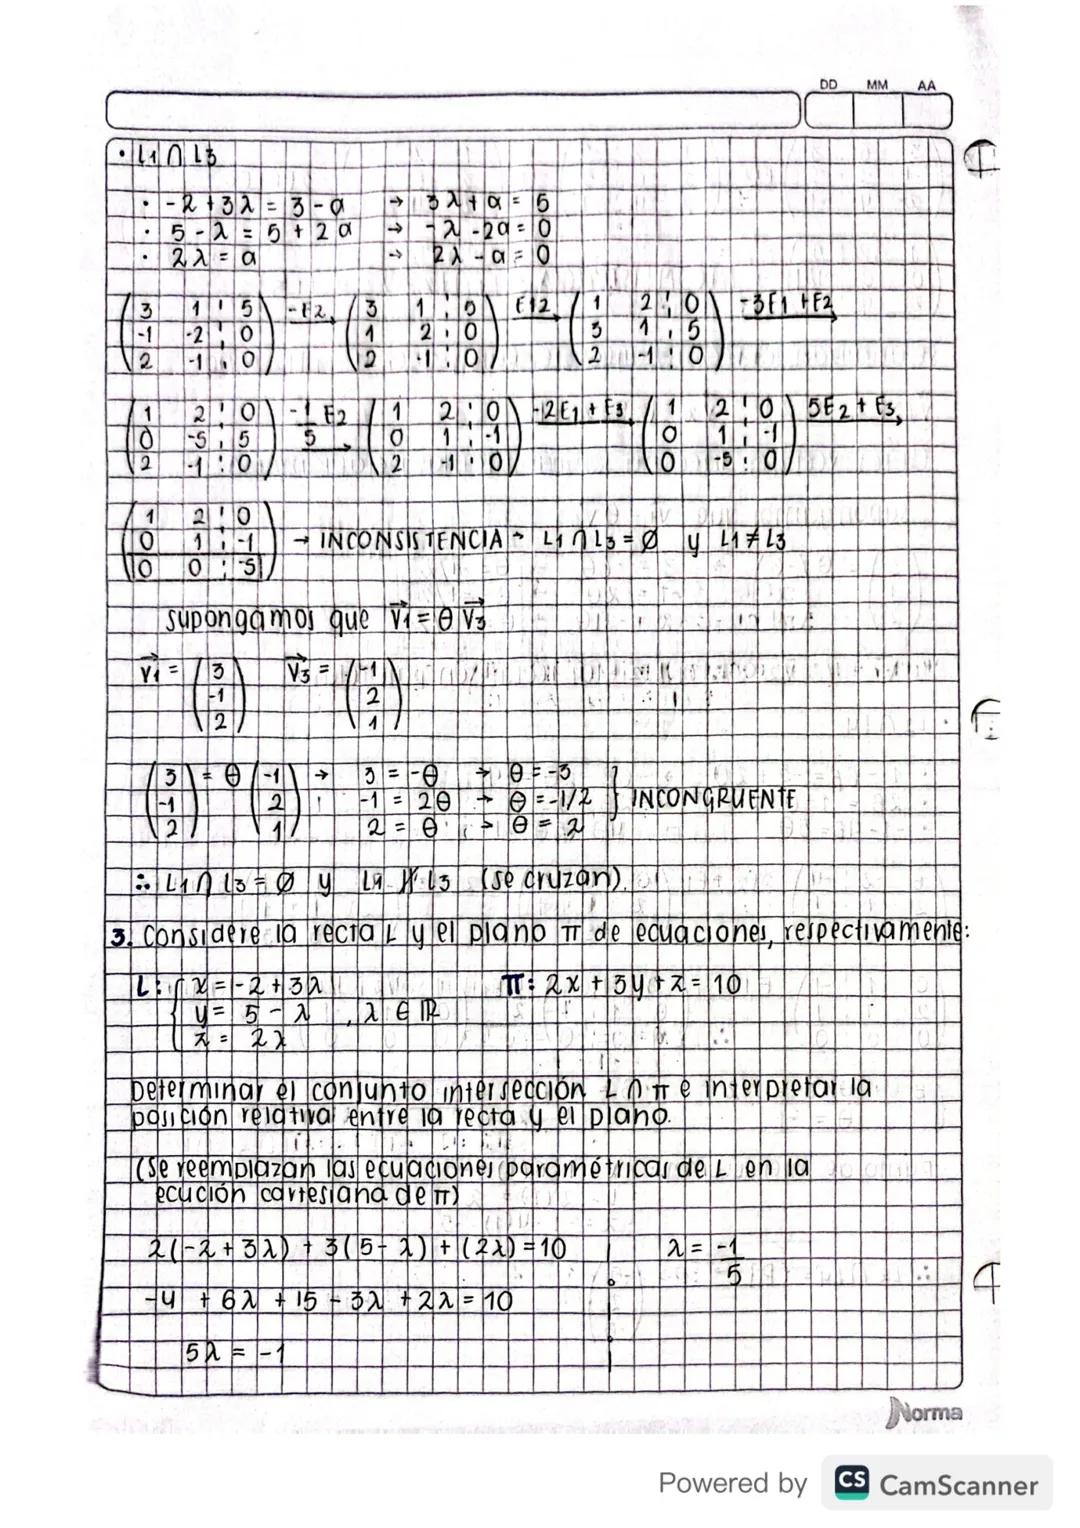 DD MM AA
• L1 ∩ L3
• -2 + 3λ = 3 - a → 3λ + a = 5
• 5 - λ = 5 + 2a → -λ - 2a = 0
• 2λ = a → 2λ - a = 0
( 3 1 ¦ 5 ) -E2 ( 3 1 ¦ 5 ) E12 ( 1 2 ¦ 0 ) -3E1 + E2
( -1 -2 ¦ 0 ) ( 1 2 ¦ 0 ) ( 3 1 ¦ 5 )
( 2 -1 ¦ 0 ) ( 2 -1 ¦ 0 ) ( 2 -1 ¦ 0 )
( 1 2 ¦ 0 ) -1/5 E2 ( 1 2 ¦ 0 ) -2E1 + E3 ( 1 2 ¦ 0 ) 5E2 + E3
( 0 -5 ¦ 5 ) ( 0 1 ¦ -1 ) ( 0 1 ¦ -1 )
( 2 -1 ¦ 0 ) ( 2 -1 ¦ 0 ) ( 0 -5 ¦ 0 )
( 1 2 ¦ 0 )
( 0 1 ¦ -1 ) → INCONSISTENCIA → L1 ∩ L3 = Ø y L1 ≠ L3
( 0 0 ¦ -5 )
supongamos que V1 = θ V3
V1 = ( 3 ) V3 = ( -1 )
( -1 ) ( 2 )
( 2 ) ( 1 )
( 3 ) = θ ( -1 ) → 3 = -θ → θ = -3
( -1 ) ( 2 ) -1 = 2θ → θ = -1/2 } INCONGRUENTE
( 2 ) ( 1 ) 2 = θ → θ = 2
∴ L1 ∩ L3 = Ø y L1 ∦ L3 (se cruzan).
3. Considere la recta L y el plano π de ecuaciones, respectivamente:
L: { x = -2 + 3λ π: 2x + 3y + z = 10
y = 5 - λ , λ ∈ ℝ
z = 2λ
Determinar el conjunto intersección L ∩ π e interpretar la
posición relativa entre la recta y el plano.
(Se reemplazan las ecuaciones paramétricas de L en la
ecución cartesiana de π)
2(-2 + 3λ) + 3(5 - λ) + (2λ) = 10 λ = -1/5
-4 + 6λ + 15 - 3λ + 2λ = 10
5λ = -1
Norma
Powered by CS CamScanner